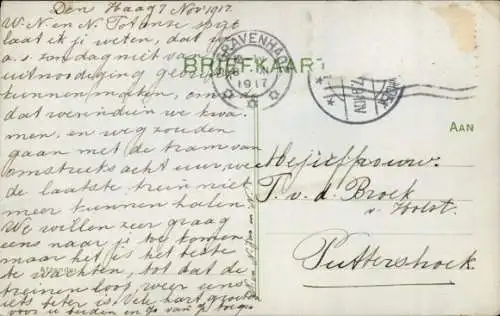 Den Haag 7 Nov 1917.
W. N. en N. Tot onze spijt
laat ik je weten, dat we
a.s. zondag niet van
uitnoodiging gebruik
kunnen maken, om
dat we indien we kwa
men, en weg zouden
gaan met de tram van
omstreeks acht uur, we
de laatste trein niet
meer kunnen halen.
We willen zeer graag
eens naar je toe komen
maar het is het beste
te wachten, tot dat de
treinen loop weer eens
iets beter is. Vele hart. groeten
voor u beiden en
BRIEFKAART
'S GRAVENHAGE
1917
7.9 NOV
AAN
Mejuffrouw.
T. v. d. Broek
v. Holst.
Puttershoek